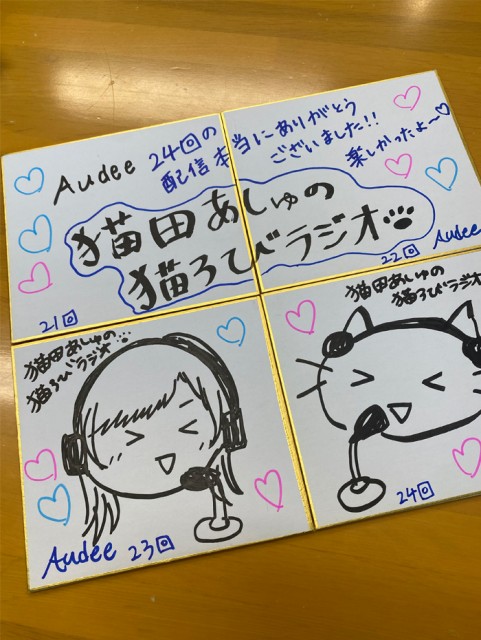 Audee 24回の
配信本当にありがとう
ございました!!
楽しかったよー
猫田あしゅの
猫ろびラジオ
21回
22回 Audee
猫田あしゅの
猫ろびラジオ
Audee 23回
猫田あしゅの
猫ろびラジオ
24回